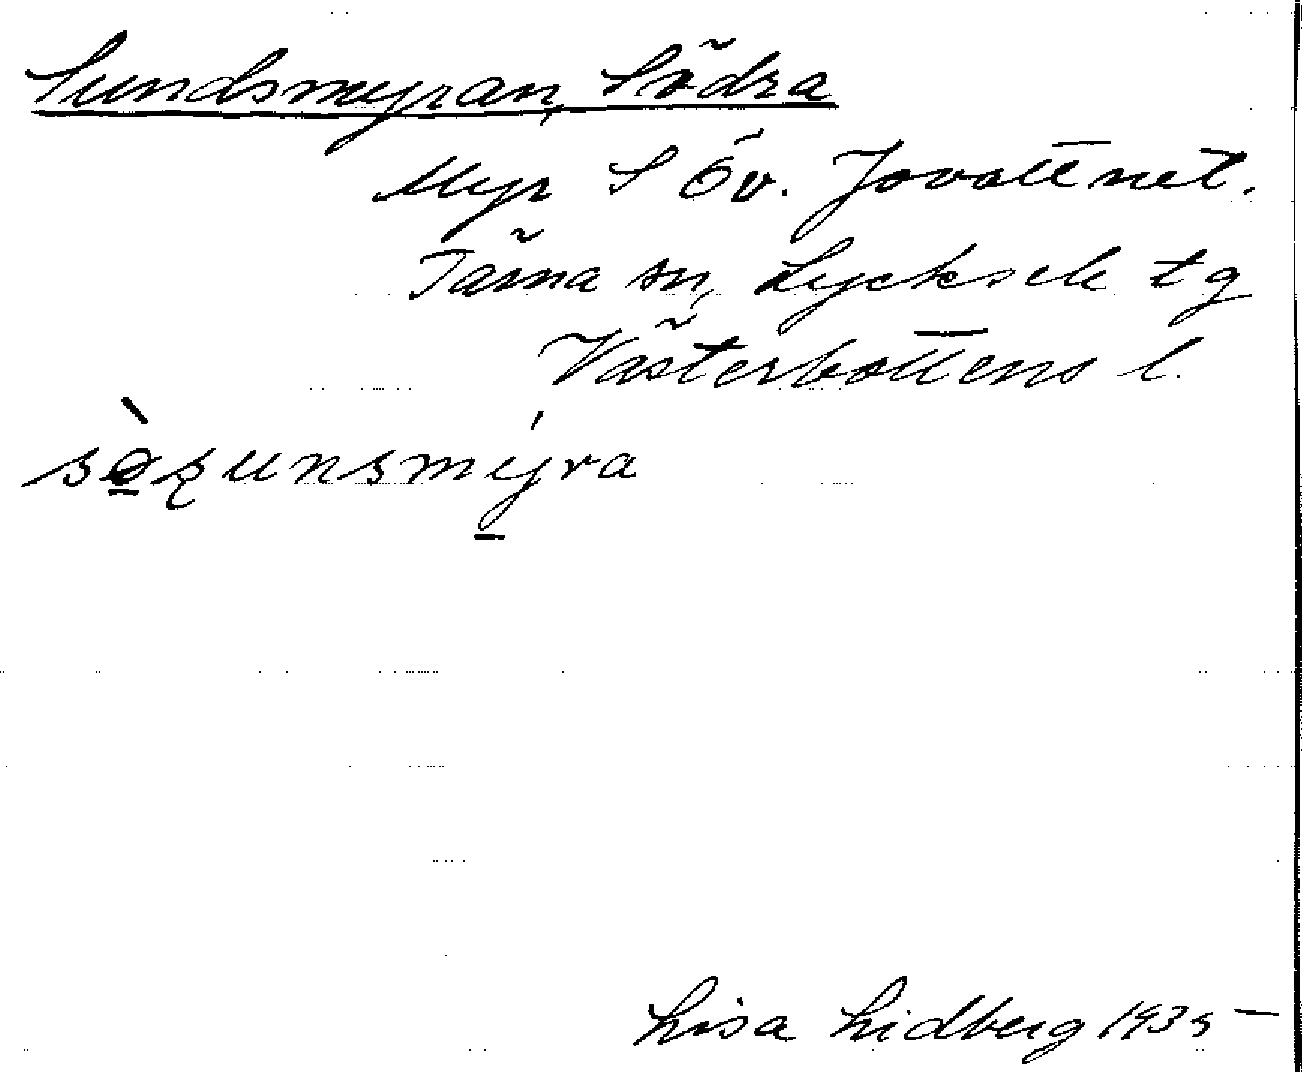 Sundsmyran, Södra
Myr S Öv. Jovattnet.
Tärna sn, Lycksele tg
Västerbottens l.
Lisa Lidberg 1935